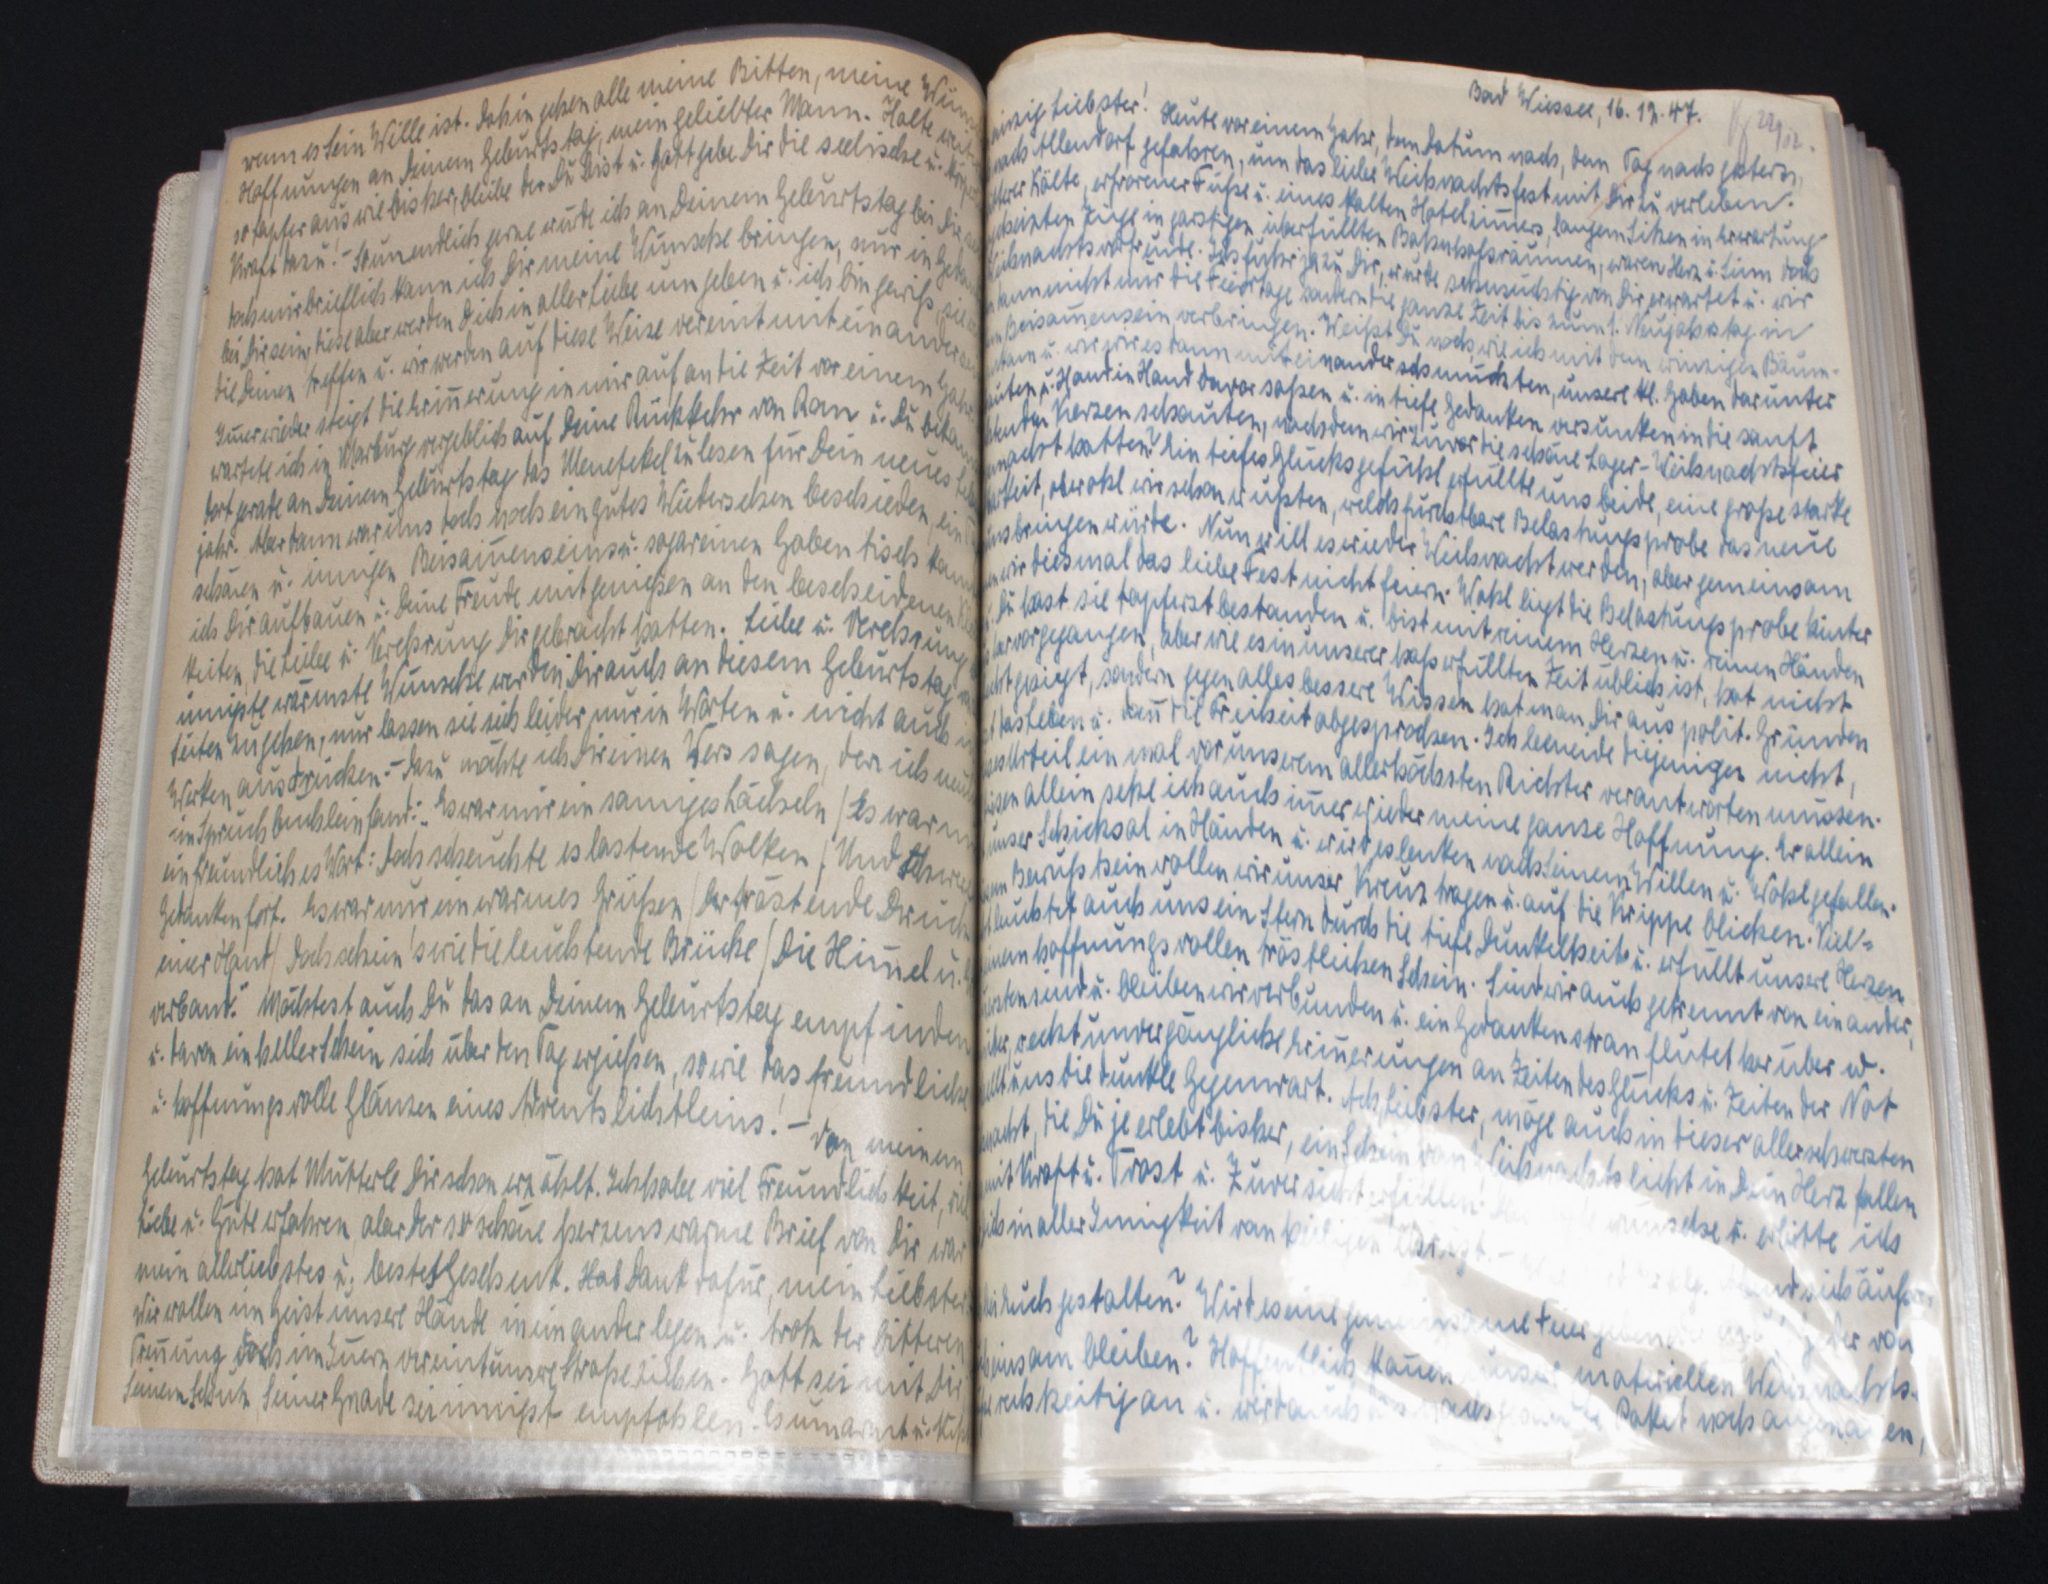 wenn es Sein Wille ist. Dahin gehen alle meine Bitten, meine
Hoffnungen an Deinem Geburtstag, mein geliebter Mann. Halte
so tapfer aus wie bisher, bleibe der Du bist u. Gott gebe Dir die seelische u.
Kraft dazu! – So unendlich gerne würde ich an Deinem Geburtstag bei Dir
doch nur brieflich kann ich Dir meine Wünsche bringen, nur in
bei Dir sein, diese aber werden Dich in aller Liebe umgeben u. ich bin gewiß,
die Deinen treffen u. wir werden auf diese Weise vereint mit einander
Immer wieder steigt die Erinnerung in mir auf an die Zeit vor einem Jahr
wartete ich in Marburg vergeblich auf Deine Rückkehr von u. Du
dort gerade an Deinem Geburtstag das Menetekel zu lesen für Dein neues
jahr. Aber dann war uns doch noch ein gutes Wiedersehen beschieden, ein
schönen u. innigen Beisammenseins u. sogar einen Gabentisch
ich Dir aufbauen u. Deine Freude mitgenießen an den bescheidenen
keiten, die Liebe u. Verehrung Dir gebracht hatten. Liebe u. Verehrung
innigste wärmste Wünsche werden Dir auch an diesem Geburtstag
Seiten zugehen, nur lassen sie sich leider nur in Worten u. nicht auch
Werken ausdrücken. – Dazu möchte ich Dir einen Vers sagen, den ich
in Spruchbüchlein fand: „Es war nur ein sonniges Lächeln / Es war
ein freundliches Wort: Doch scheuchte es lastende Wolken / Und
Gedanken fort. Es war nur ein warmes Grüßen / Der tröstende Druck
einer Hand / Doch schien's wie die leuchtende Brücke / Die Himmel u.
verband.“ Möchtest auch Du das an Deinem Geburtstag empfinden
u. davon ein heller Schein sich über den Tag ergießen, so wie das freundliche
u. hoffnungsvolle Glänzen eines Adventslichtleins! – Von meinem
Geburtstag hat Mutterle Dir schon erzählt. Ich habe viel Freundlichkeit, viel
Liebe u. Güte erfahren, aber der so schöne herzenswarme Brief von Dir war
mein allerliebstes u. bestes Geschenk. Hab Dank dafür, mein Liebster.
Wir wollen im Geist unsere Hände ineinander legen u. trotz der bitteren
Trennung doch im Innern vereint unsere Straße ziehen. Gott sei mit Dir
Seinem Schutz Seiner Gnade sei innigst empfohlen. Es umarmt u.
Bad Wiessee, 16. 12. 47.
Liebster! Heute vor einem Jahr, dem Datum nach, dem Tag nach gestern,
nach Allendorf gefahren, um das liebe Weihnachtsfest mit Dir zu verleben.
Kälte, erfrorener Füße u. eines kalten Hotelzimmers, langem Sitzen in Erwartung
Züge in garstigen überfüllten Bahnhofsräumen, waren Herz u. Sinn doch
Weihnachtsvorfreude. Ich fuhr ja zu Dir, wurde sehnsüchtig von Dir erwartet u. wir
dann nicht nur die Feiertage sondern die ganze Zeit bis zum 1. Neujahrstag in
Beisammensein verbringen. Weißt Du noch, wie ich mit dem winzigen Bäum-
u. wie wir es dann miteinander schmückten, unsere kl. Gaben darunter
u. Hand in Hand davor saßen u. in tiefe Gedanken versunken in die sanft
Kerzen schauten, nachdem wir zuvor die schöne Lager-Weihnachtsfeier
hatten? Ein tiefes Glücksgefühl erfüllte uns beide, eine große starke
obwohl wir schon wußten, welch furchtbare Belastungsprobe das neue
bringen würde. Nun will es wieder Weihnacht werden, aber gemeinsam
wir diesmal das liebe Fest nicht feiern. Wohl liegt die Belastungsprobe hinter
Du hast sie tapferst bestanden u. bist mit reinem Herzen u. reinen Händen
hervorgegangen, aber wie es in unserer haßerfüllten Zeit üblich ist, hat nicht
gesiegt, sondern gegen alles bessere Wissen hat man Dir aus polit. Gründen
das Leben u. dann die Freiheit abgesprochen. Ich beneide diejenigen nicht,
Urteil einmal vor unserem allerhöchsten Richter verantworten müssen.
allein setze ich auch immer wieder meine ganze Hoffnung. Er allein
unser Schicksal in Händen u. wird es lenken nach Seinem Willen u. Wohlgefallen.
Bewußtsein wollen wir unser Kreuz tragen u. auf die Krippe blicken. Viel-
leuchtet auch uns ein Stern durch die tiefe Dunkelheit u. erfüllt unsere Herzen
hoffnungsvollen tröstlichen Schein. Sind wir auch getrennt von einander,
sind u. bleiben wir verbunden u. ein Gedankenstrom flutet herüber u.
weckt unvergängliche Erinnerungen an Zeiten des Glücks u. Zeiten der Not
uns die dunkle Gegenwart. Ach Liebster, möge auch in dieser allerschwersten
die Du je erlebt bisher, ein Schein vom Weihnachtslicht in Dein Herz fallen
mit Kraft u. Trost u. Zuversicht erfüllen. wünsche u. erbitte ich
in aller Innigkeit vom heiligen Christ. – Abend sich äußer-
gestalten? Wird es eine gemeinsame Feier geben jeder von
einsam bleiben? Hoffentlich kamen unser materiellen Weihnachts-
rechtzeitig an u. wird auch Paket noch angenommen,